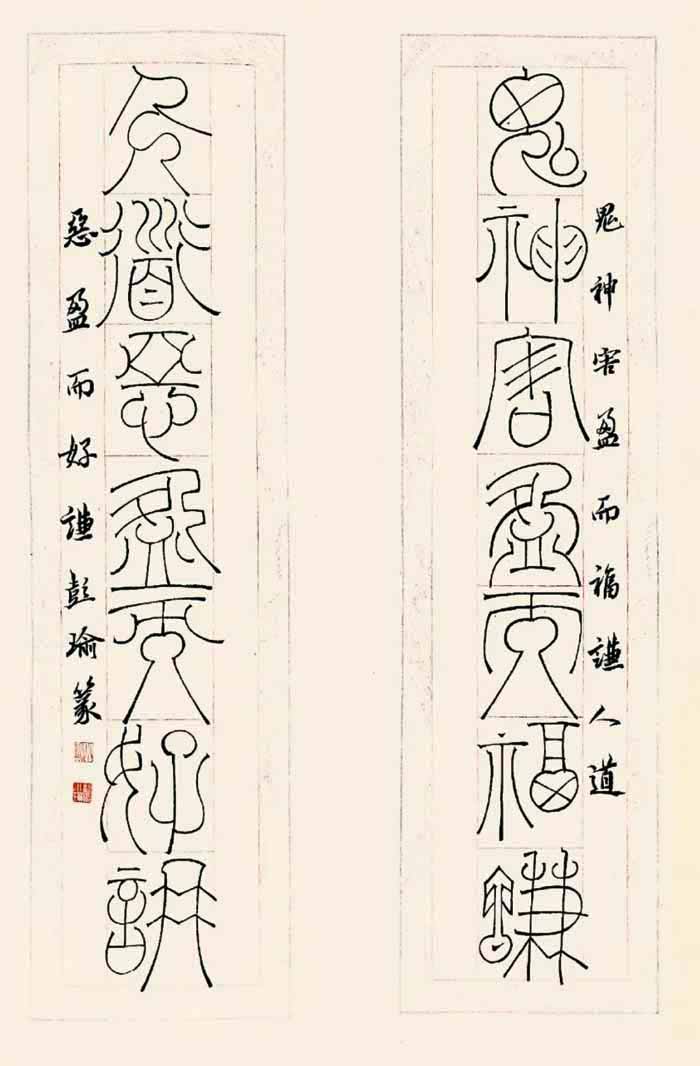 鬼神害盈而福謙
鬼神害盈而福謙人道
人道惡盈而好謙
惡盈而好謙彭瑜篆